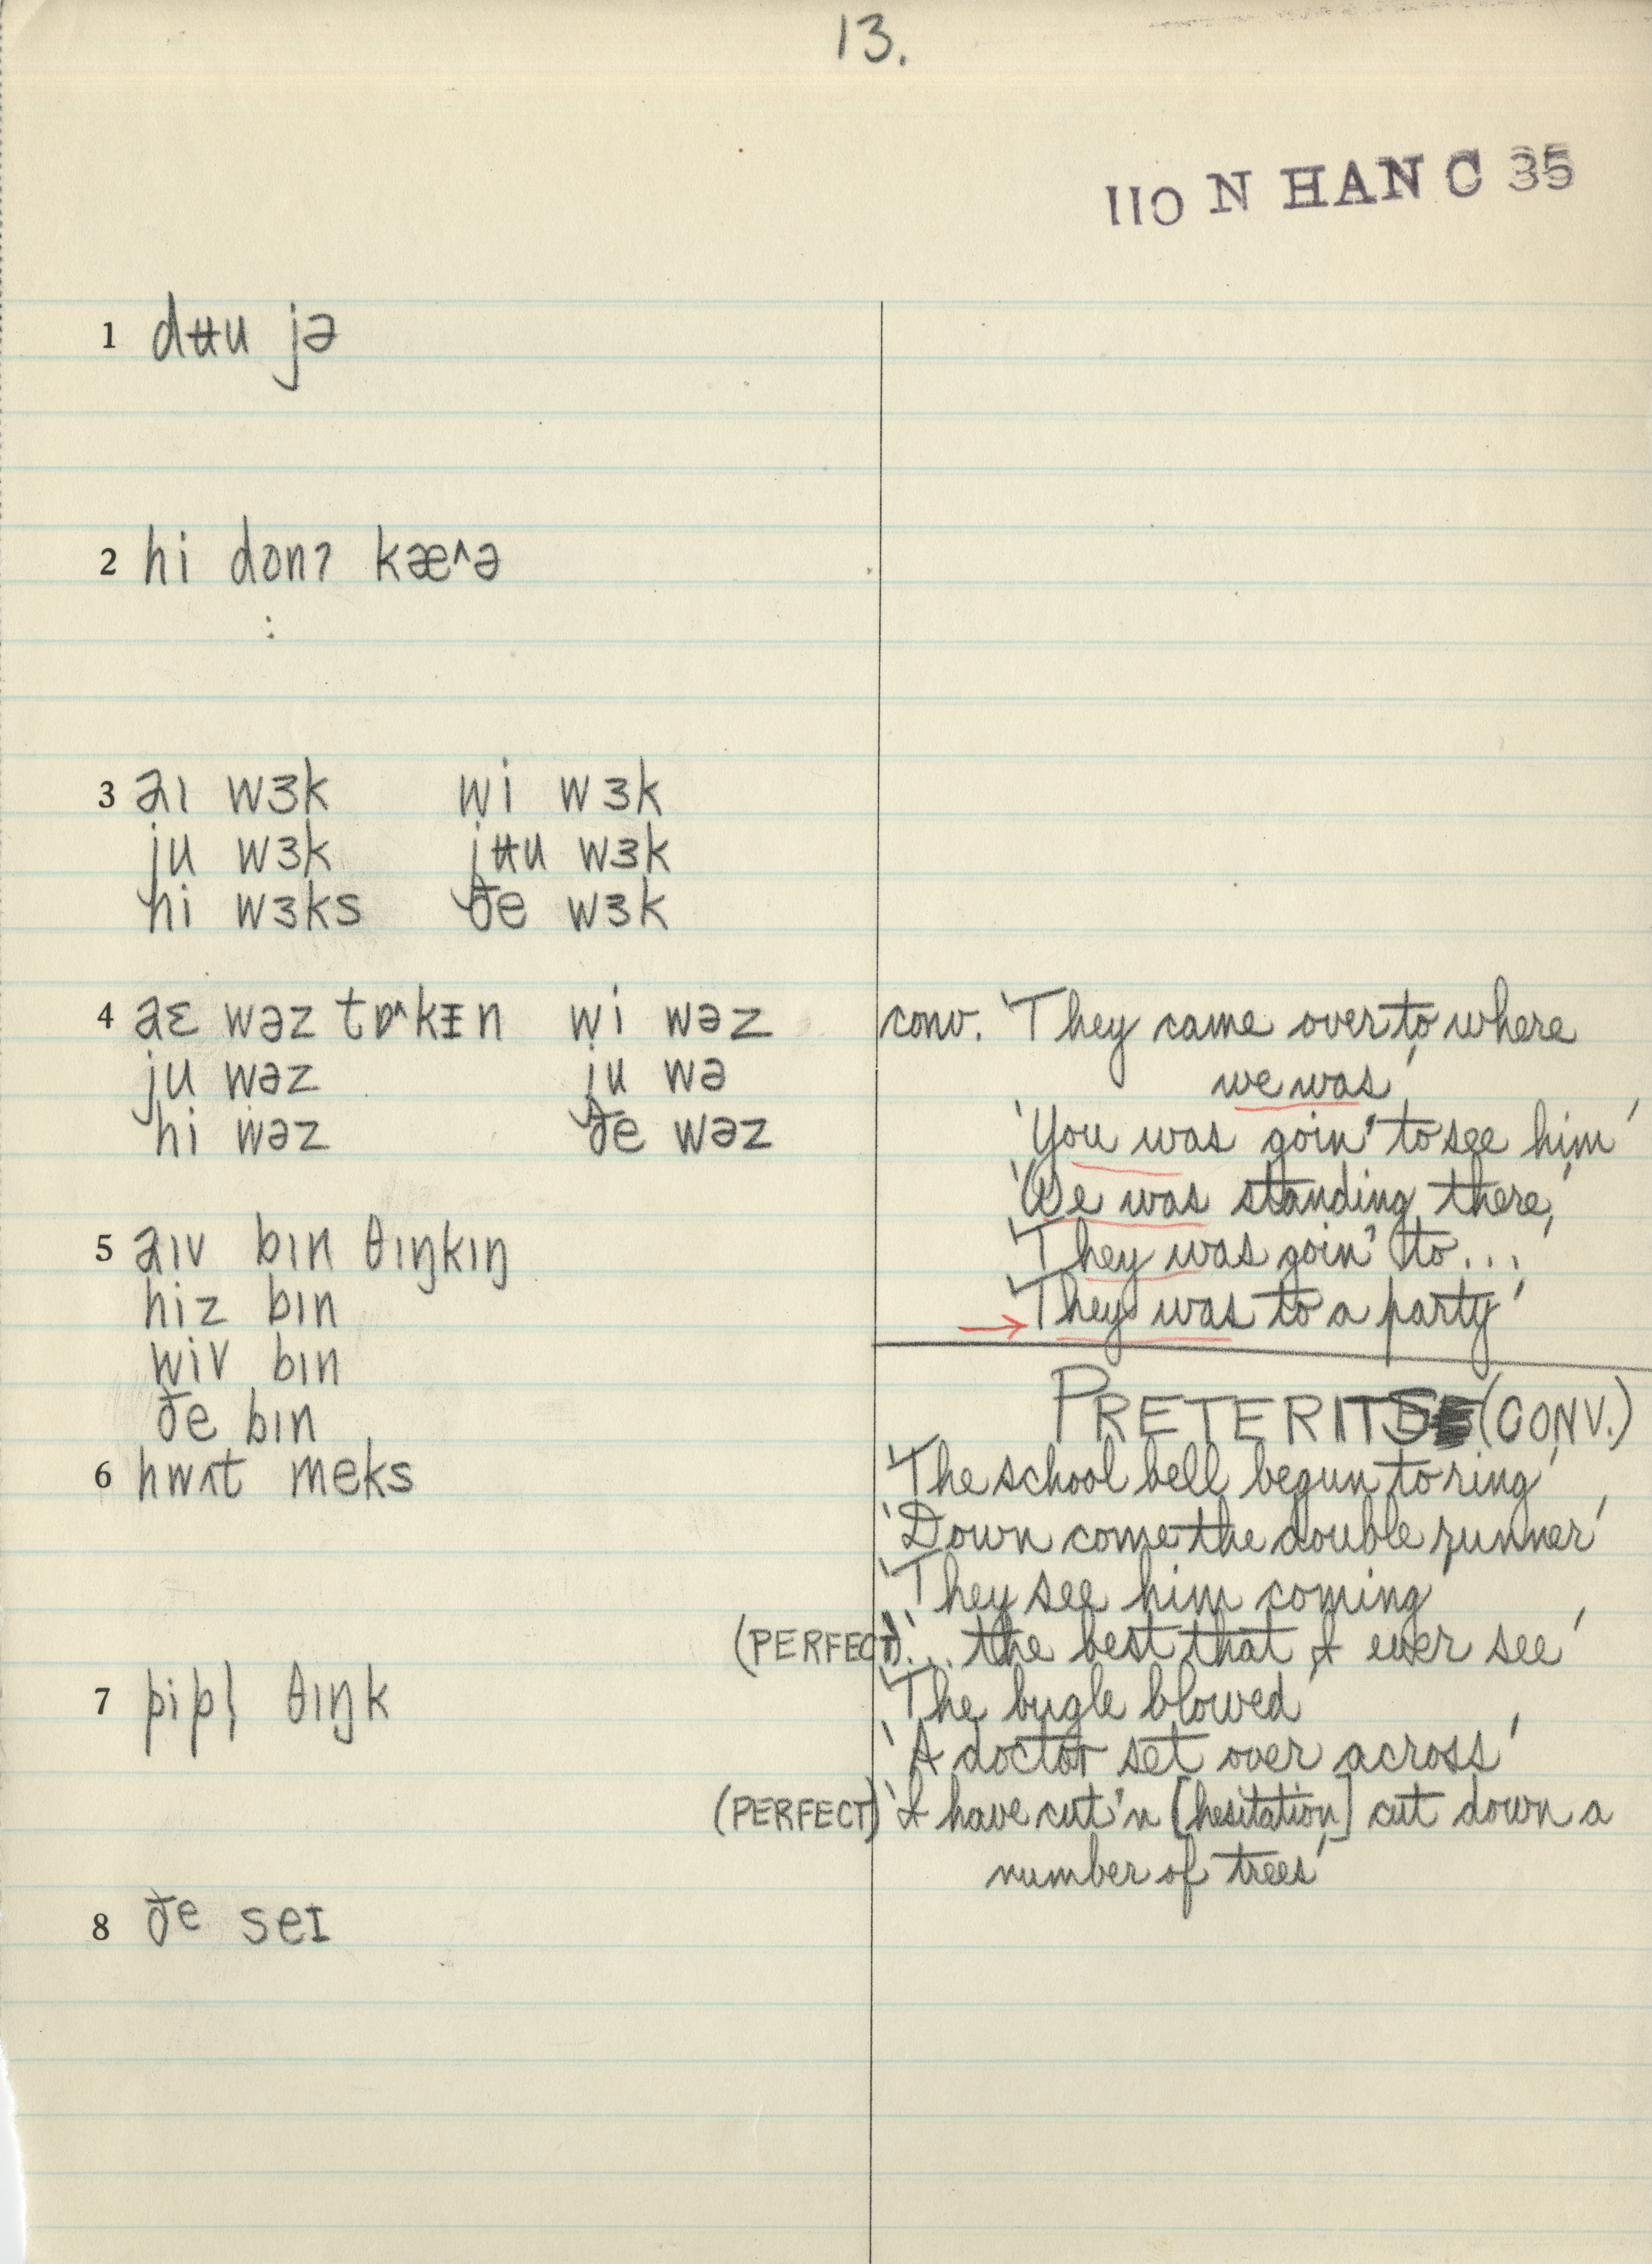 13.
110 N HAN C 35
1 dʉu jə
2 hi dɔnʔ kæ^ə
:
3 aɪ wɜk wi wɜk
ju wɜk jʉu wɜk
hi wɜks ðe wɜk
4 aɛ wəz tɒ^kɪn wi wəz
ju wəz ju wə
hi wəz ðe wəz
5 aɪv bɪn θɪŋkɪŋ
hiz bɪn
wiv bɪn
ðe bɪn
6 hwʌt meks
7 pipl̩ θɪŋk
8 ðe seɪ
conv. 'They came over to where
we was'
'You was goin' to see him'
'We was standing there,'
'They was goin' to...'
→ 'They was to a party'
PRETERITS (CONV.)
'The school bell begun to ring'
'Down come the double runner'
'They see him coming'
(PERFECT) '... the best that I ever see'
'The bugle blowed'
'A doctor set over across'
(PERFECT) 'I have cut'n [hesitation] cut down a
number of trees'